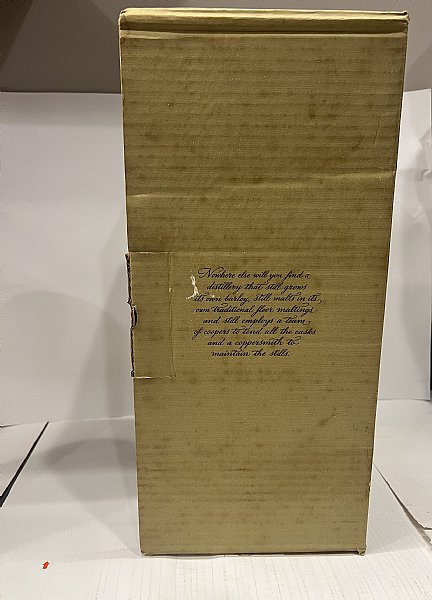 Nowhere else will you find a
distillery that still grows
its own barley, still malts in its
own traditional floor maltings
and still employs a team
of coopers to tend all the casks
and a coppersmith to
maintain the stills.